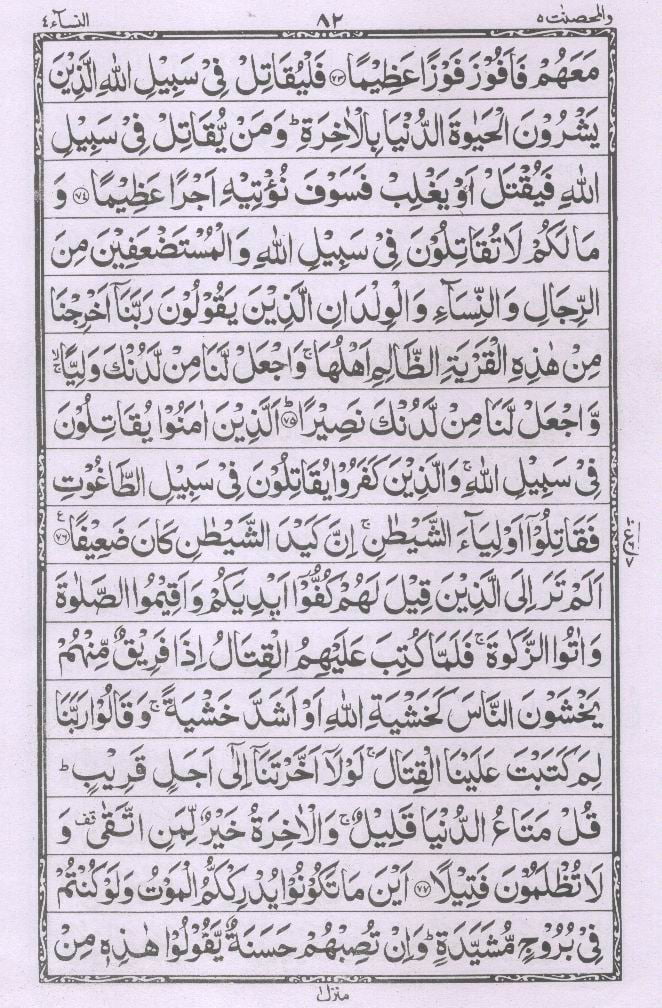 والمحصنت ۵ ۸۲ النسآء ۴
مَعَهُمْ فَاَفُوْزَ فَوْزًا عَظِيْمًا ﴿۷۳﴾ فَلْيُقَاتِلْ فِیْ سَبِيْلِ اللّٰهِ الَّذِيْنَ
يَشْرُوْنَ الْحَيٰوةَ الدُّنْيَا بِالْاٰخِرَةِ ؕ وَمَنْ يُّقَاتِلْ فِیْ سَبِيْلِ
اللّٰهِ فَيُقْتَلْ اَوْ يَغْلِبْ فَسَوْفَ نُؤْتِيْهِ اَجْرًا عَظِيْمًا ﴿۷۴﴾ وَ
مَا لَكُمْ لَا تُقَاتِلُوْنَ فِیْ سَبِيْلِ اللّٰهِ وَالْمُسْتَضْعَفِيْنَ مِنَ
الرِّجَالِ وَالنِّسَآءِ وَالْوِلْدَانِ الَّذِيْنَ يَقُوْلُوْنَ رَبَّنَآ اَخْرِجْنَا
مِنْ هٰذِهِ الْقَرْيَةِ الظَّالِمِ اَهْلُهَا ۚ وَاجْعَلْ لَّنَا مِنْ لَّدُنْكَ وَلِيًّا ۙۚ
وَّاجْعَلْ لَّنَا مِنْ لَّدُنْكَ نَصِيْرًا ﴿۷۵﴾ؕ اَلَّذِيْنَ اٰمَنُوْا يُقَاتِلُوْنَ
فِیْ سَبِيْلِ اللّٰهِ ۚ وَالَّذِيْنَ كَفَرُوْا يُقَاتِلُوْنَ فِیْ سَبِيْلِ الطَّاغُوْتِ
فَقَاتِلُوْٓا اَوْلِيَآءَ الشَّيْطٰنِ ۚ اِنَّ كَيْدَ الشَّيْطٰنِ كَانَ ضَعِيْفًا ﴿۷۶﴾ ع
اَلَمْ تَرَ اِلَى الَّذِيْنَ قِيْلَ لَهُمْ كُفُّوْٓا اَيْدِيَكُمْ وَاَقِيْمُوا الصَّلٰوةَ
وَاٰتُوا الزَّكٰوةَ ۚ فَلَمَّا كُتِبَ عَلَيْهِمُ الْقِتَالُ اِذَا فَرِيْقٌ مِّنْهُمْ
يَخْشَوْنَ النَّاسَ كَخَشْيَةِ اللّٰهِ اَوْ اَشَدَّ خَشْيَةً ۚ وَقَالُوْا رَبَّنَا
لِمَ كَتَبْتَ عَلَيْنَا الْقِتَالَ ۚ لَوْلَآ اَخَّرْتَنَآ اِلٰٓى اَجَلٍ قَرِيْبٍ ؕ
قُلْ مَتَاعُ الدُّنْيَا قَلِيْلٌ ۚ وَالْاٰخِرَةُ خَيْرٌ لِّمَنِ اتَّقٰى قف وَ
لَا تُظْلَمُوْنَ فَتِيْلًا ﴿۷۷﴾ اَيْنَ مَا تَكُوْنُوْا يُدْرِكْكُّمُ الْمَوْتُ وَلَوْ كُنْتُمْ
فِیْ بُرُوْجٍ مُّشَيَّدَةٍ ؕ وَاِنْ تُصِبْهُمْ حَسَنَةٌ يَّقُوْلُوْا هٰذِهٖ مِنْ
منزل ۱